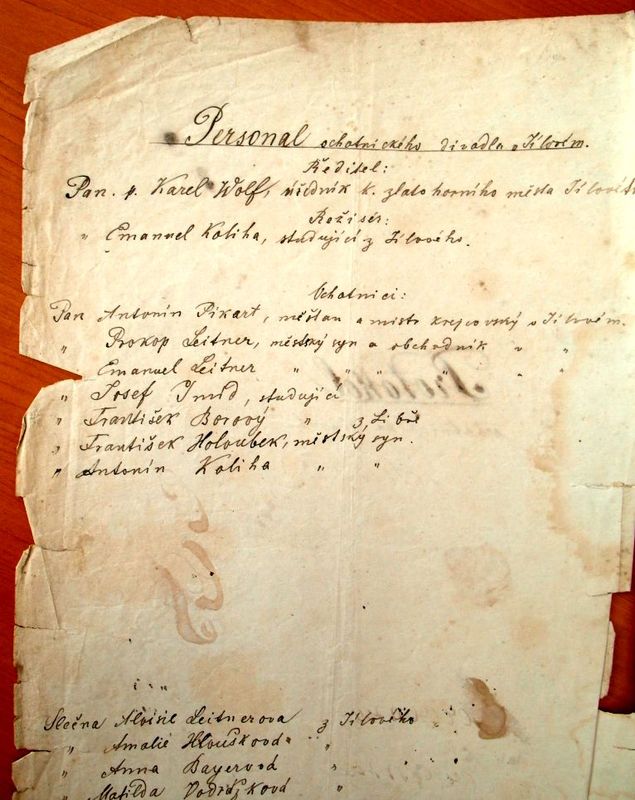 Personal ochotnického divadla v Jílovém.
Ředitel:
Pan. p. Karel Wolf, úředník k. zlatohorního města Jílového
Režisér:
„ Emanuel Koliha, studující z Jílového.
Ochotníci:
Pan Antonín Pikart, měšťan a mistr krejčovský v Jílovém.
„ Prokop Leitner, městský syn a obchodník „ „
Emanuel Leitner „ „ „ „ „
„ Josef Šmíd, studující
„ František Borový „ z Libně
„ František Holoubek, městský syn.
„ Antonín Koliha „ „
Slečna Aloisie Leitnerova z Jílového
„ Amalie Hlouškova „
„ Anna Bayerová „
„ Matilda Vodrážková „